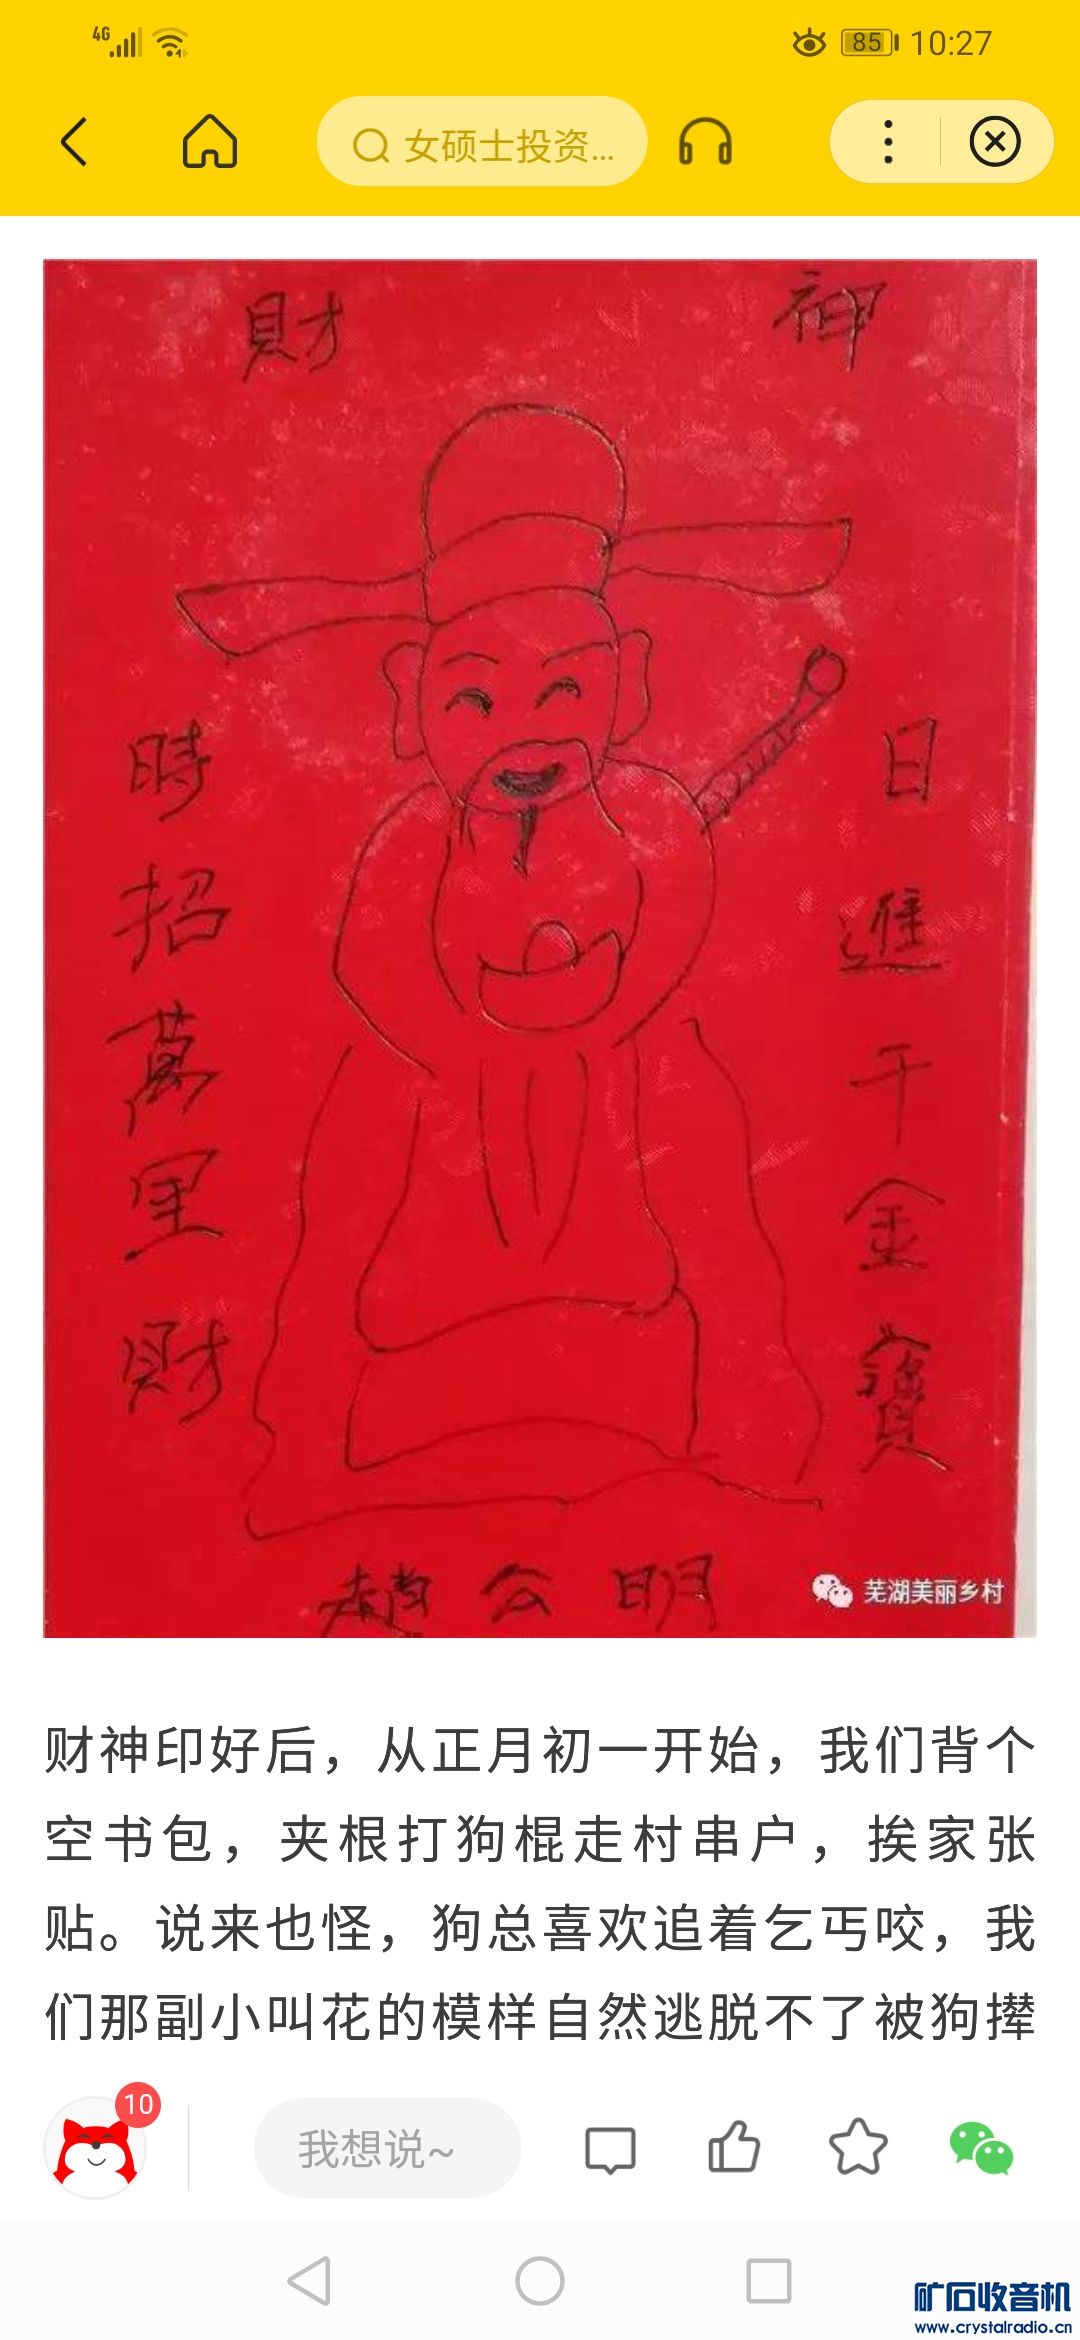 4G 85 10:27
女硕士投资...
財 神
日進千金寶
時招萬里財
趙公明
芜湖美丽乡村
财神印好后，从正月初一开始，我们背个
空书包，夹根打狗棍走村串户，挨家张
贴。说来也怪，狗总喜欢追着乞丐咬，我
们那副小叫花的模样自然逃脱不了被狗撵
10
我想说~
矿石收音机
www.crystalradio.cn